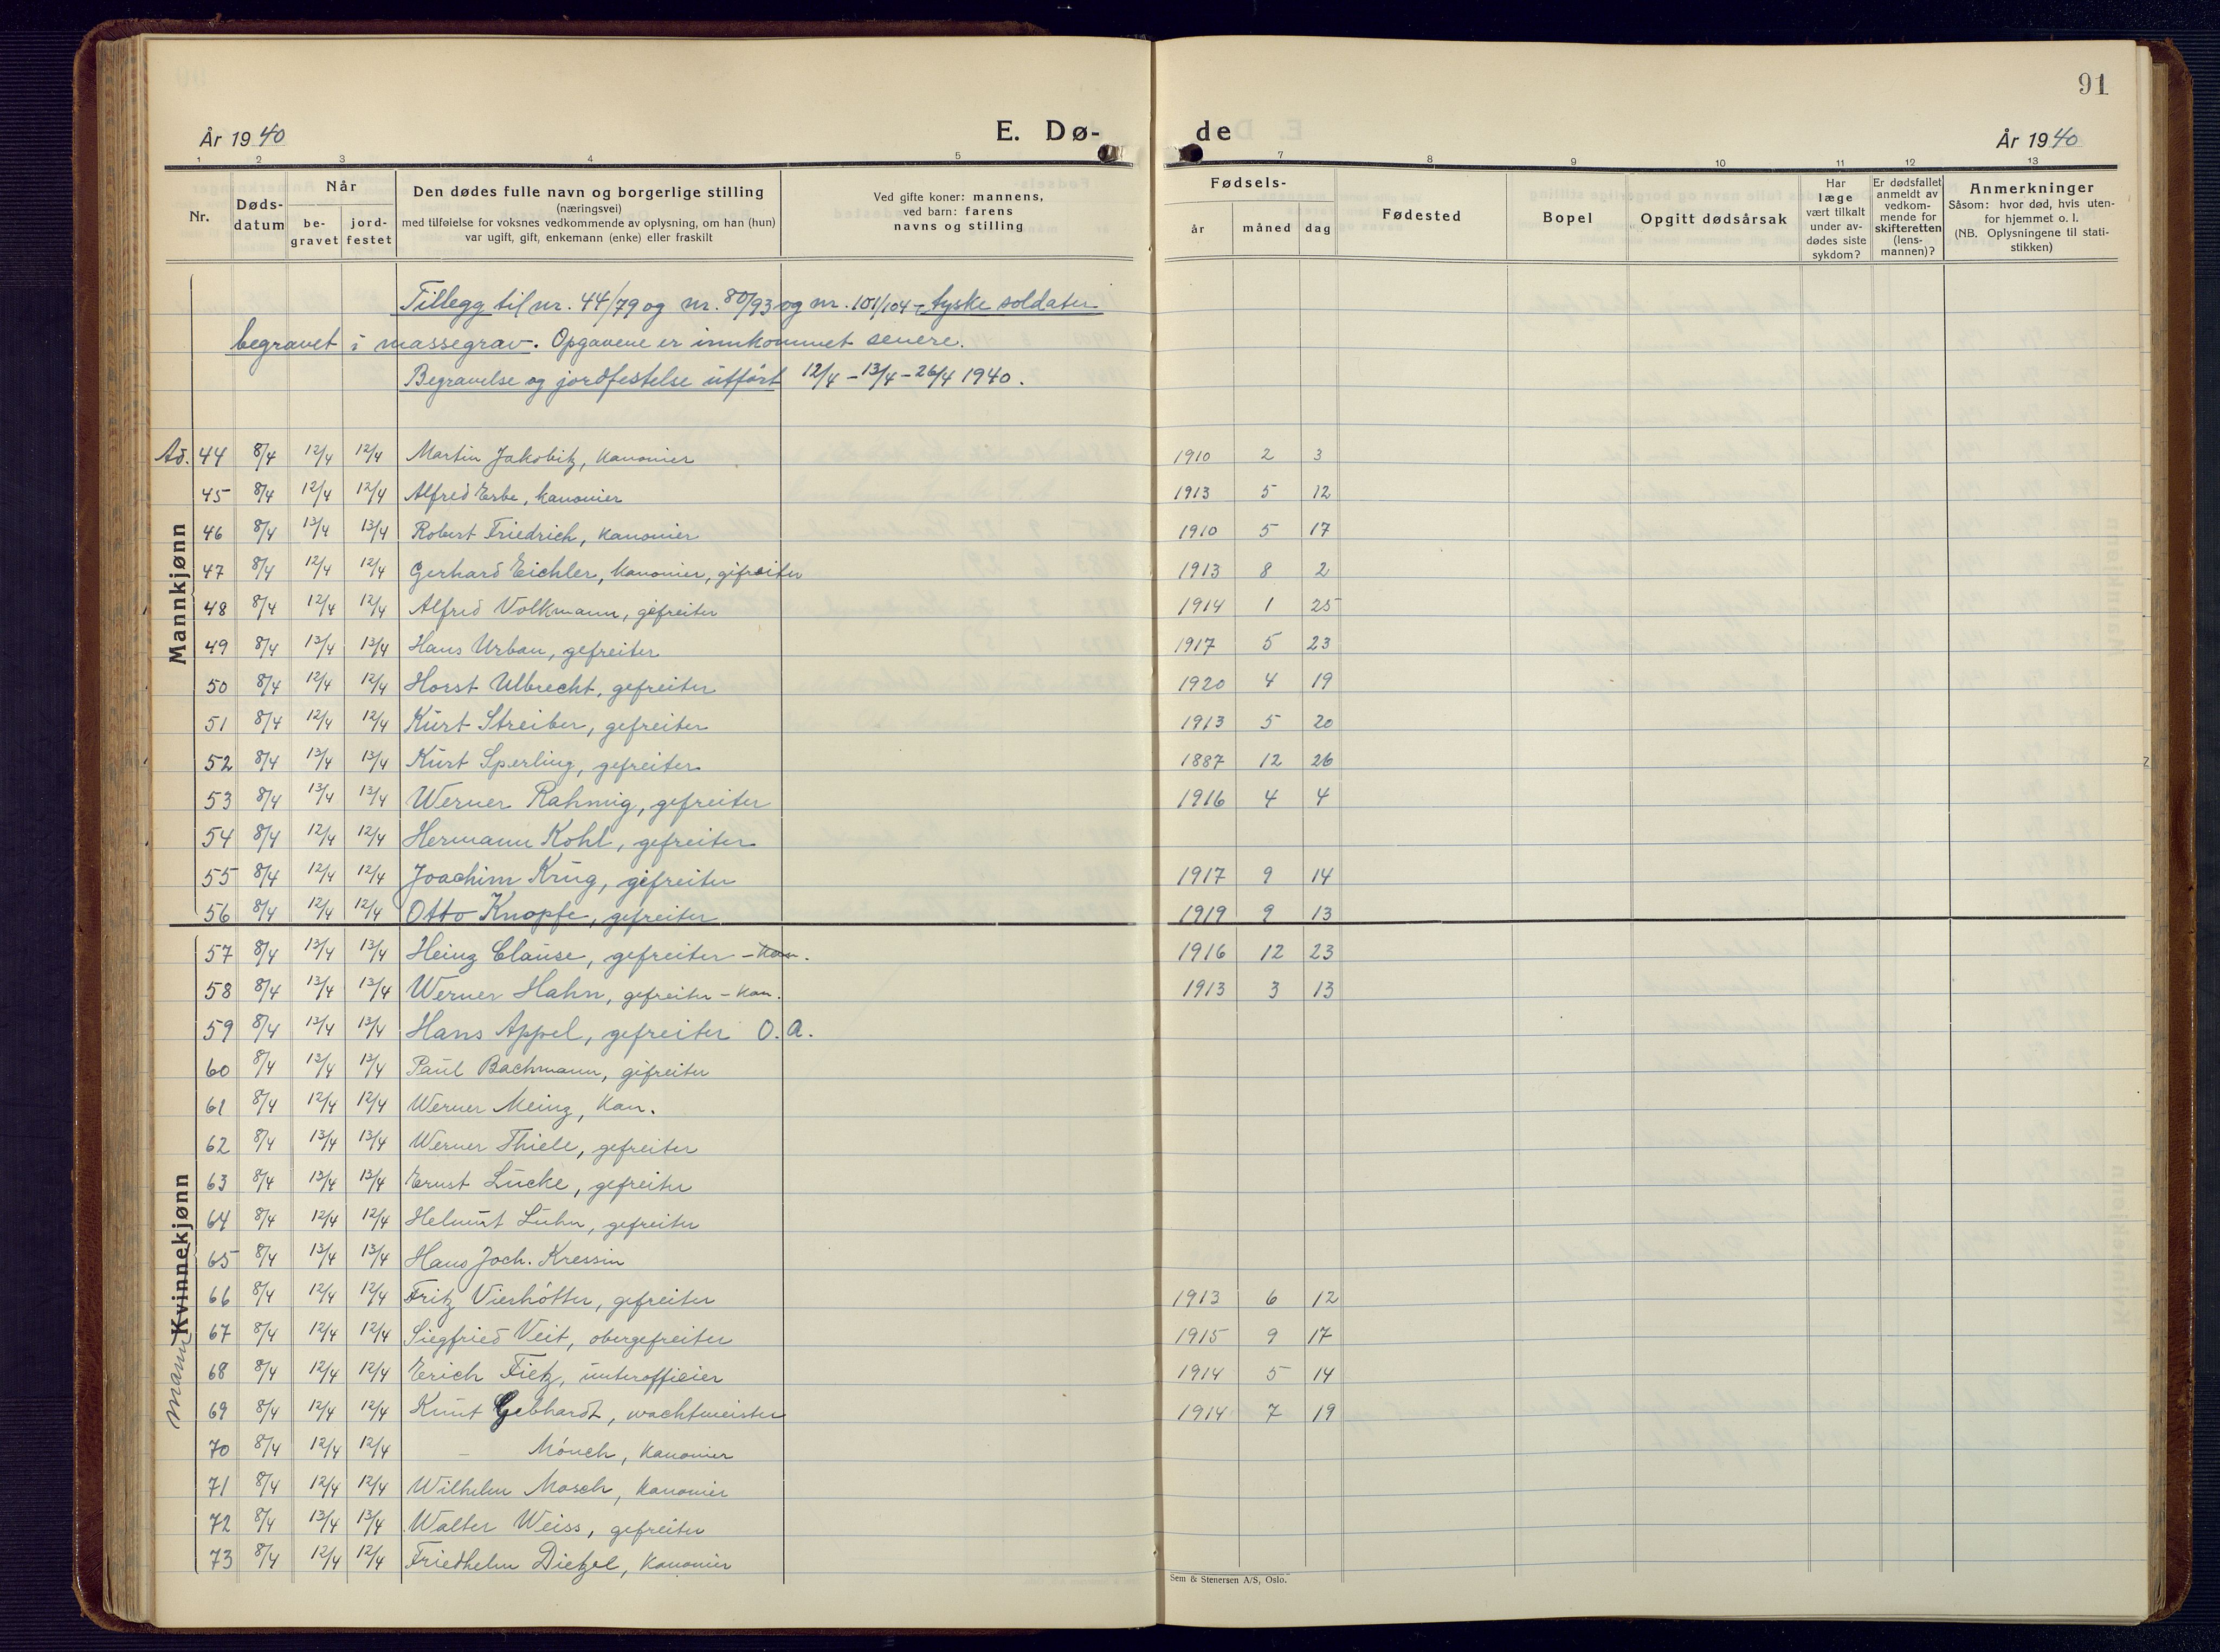 91
År 1940
E. Dø-
de
År 1940
1 2 3 4 5 7 8 9 10 11 12 13
Nr.
Døds-
datum
Når
be-
gravet
jord-
festet
Den dødes fulle navn og borgerlige stilling
(næringsvei)
med tilføielse for voksnes vedkommende av oplysning, om han (hun)
var ugift, gift, enkemann (enke) eller fraskilt
Ved gifte koner: mannens,
ved barn: farens
navns og stilling
Fødsels-
år måned dag
Fødested
Bopel
Opgitt dødsårsak
Har
læge
vært tilkalt
under av-
dødes siste
sykdom?
Er dødsfallet
anmeldt av
vedkom-
mende for
skifteretten
(lens-
mannen)?
Anmerkninger
Såsom: hvor død, hvis uten-
for hjemmet o. l.
(NB. Oplysningene til stati-
stikken)
Tillegg til nr. 44/79 og nr. 80/93 og nr. 101/104 - tyske soldater
begravet i massegrav. Opgavene er innkommet senere.
Begravelse og jordfestelse utført 12/4 - 13/4 - 26/4 1940.
Mannkjønn
Ad. 44 8/4 12/4 12/4 Martin Jakobitz, kanonier 1910 2 3
45 8/4 12/4 12/4 Alfred Erbe, kanonier 1913 5 12
46 8/4 13/4 13/4 Robert Friedrich, kanonier 1910 5 17
47 8/4 12/4 12/4 Gerhard Eichler, kanonier, gefreiter 1913 8 2
48 8/4 12/4 12/4 Alfred Volkmann, gefreiter 1914 1 25
49 8/4 13/4 13/4 Hans Urban, gefreiter 1917 5 23
50 8/4 12/4 12/4 Horst Ulbrecht, gefreiter 1920 4 19
51 8/4 12/4 12/4 Kurt Streiber, gefreiter 1913 5 20
52 8/4 13/4 13/4 Kurt Sperling, gefreiter 1887 12 26
53 8/4 13/4 13/4 Werner Rahmig, gefreiter 1916 4 4
54 8/4 12/4 12/4 Hermann Kohl, gefreiter
55 8/4 12/4 12/4 Joachim Krug, gefreiter 1917 9 14
56 8/4 12/4 12/4 Otto Knopfe, gefreiter 1919 9 13
Kvinnekjønn
mann
57 8/4 13/4 13/4 Heinz Clause, gefreiter - kan. 1916 12 23
58 8/4 13/4 13/4 Werner Hahn, gefreiter - kan. 1913 3 13
59 8/4 13/4 13/4 Hans Appel, gefreiter O. A.
60 8/4 13/4 13/4 Paul Bachmann, gefreiter
61 8/4 12/4 12/4 Werner Meinz, kan.
62 8/4 13/4 13/4 Werner Thiele, gefreiter
63 8/4 13/4 13/4 Ernst Lücke, gefreiter
64 8/4 12/4 12/4 Helmut Luhn, gefreiter
65 8/4 13/4 13/4 Hans Joch. Kressin
66 8/4 12/4 12/4 Fritz Vierhötter, gefreiter 1913 6 12
67 8/4 12/4 12/4 Siegfried Veit, obergefreiter 1915 9 17
68 8/4 12/4 12/4 Erich Fietz, unteroffieier 1914 5 14
69 8/4 12/4 12/4 Knut Gebhardt, wachtmeister 1914 7 19
70 8/4 12/4 12/4 - Mönch, kanonier
71 8/4 12/4 12/4 Wilhelm Mosch, kanonier
72 8/4 13/4 13/4 Walter Weiss, gefreiter
73 8/4 12/4 12/4 Friedhelm Dietzel, kanonier
Sem & Stenersen A/S, Oslo.